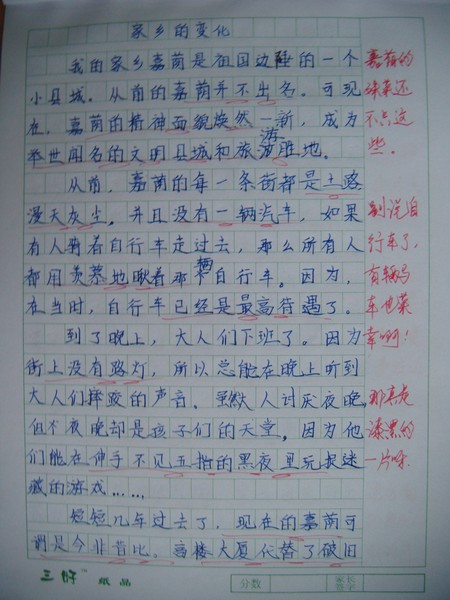 家乡的变化
我的家乡嘉荫是祖国边陲的一个
小县城。从前的嘉荫并不出名。可现
在，嘉荫的精神面貌焕然一新，成为
举世闻名的文明县城和旅游胜地。
从前，嘉荫的每一条街都是土路
漫天灰尘。并且没有一辆汽车，如果
有人骑着自行车走过去，那么所有人
都用羡慕地瞅着那辆自行车。因为，
在当时，自行车已经是最高待遇了。
到了晚上，大人们下班了。因为
街上没有路灯，所以总能在晚上听到
大人们摔跤的声音。虽然大人讨厌夜晚，
但不夜晚却是孩子们的天堂，因为他
们能在伸手不见五指的黑夜里玩捉迷
藏的游戏……
短短几年过去了，现在的嘉荫可
谓是今非昔比。高楼大厦代替了破旧
嘉荫的
还
不只这
些。
别说自
行车了，
有辆马
车也荣
幸啊！
那真是
漆黑的
一片呀.
三好 纸品
分数
家长
签字